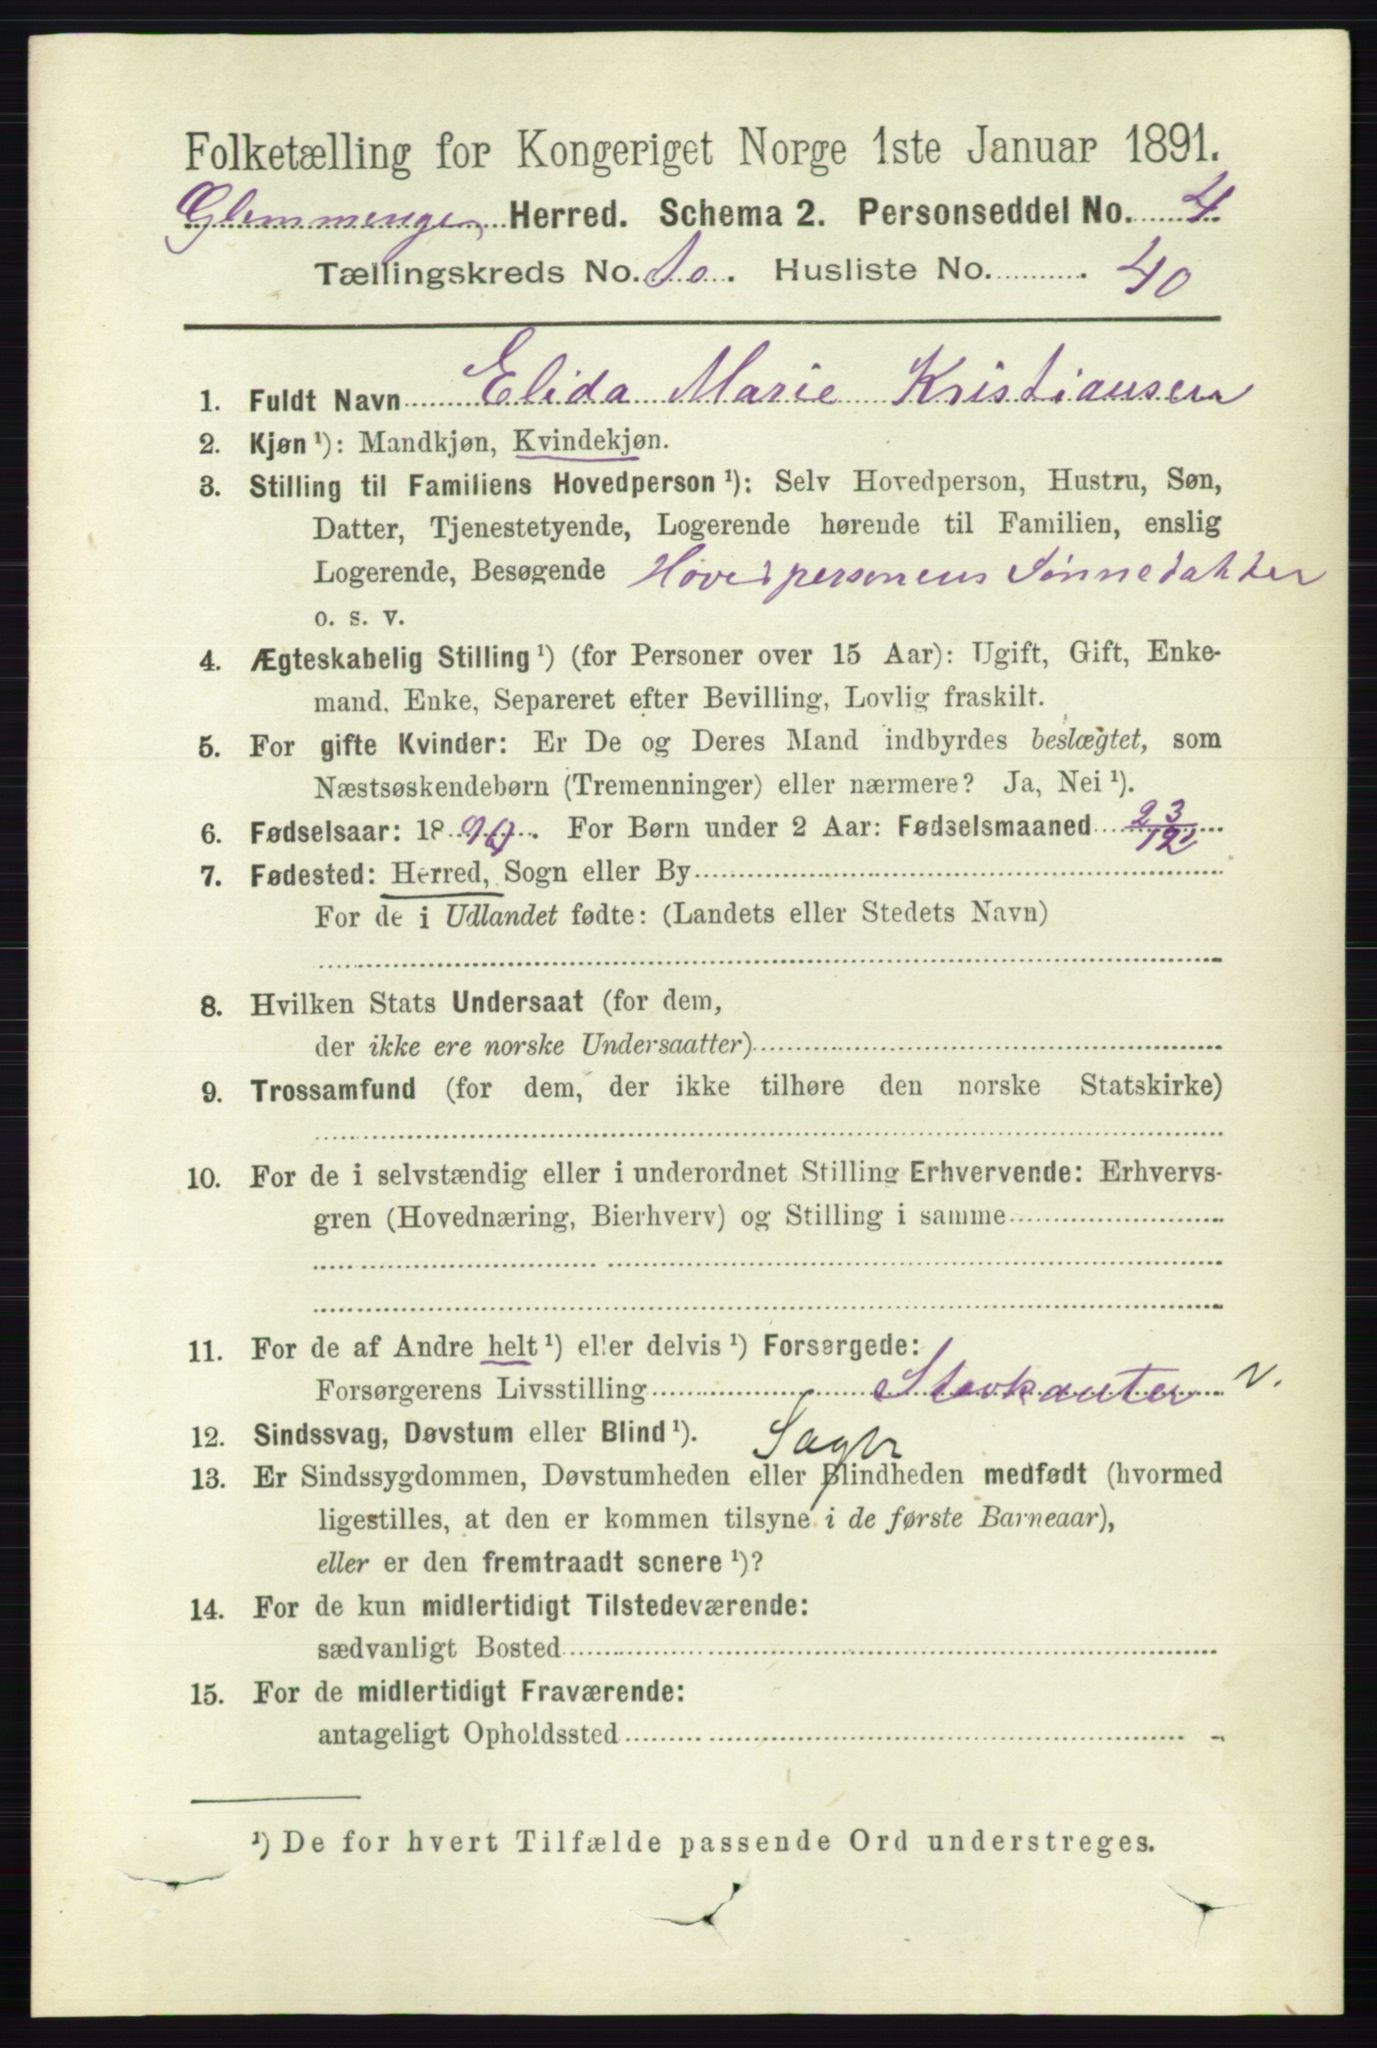 Folketælling for Kongeriget Norge 1ste Januar 1891.
Glemmenge Herred. Schema 2. Personseddel No. 4
Tællingskreds No. 10. Husliste No. 40
1. Fuldt Navn Elida Marie Kristiansen
2. Kjøn ¹): Mandkjøn, Kvindekjøn.
3. Stilling til Familiens Hovedperson ¹): Selv Hovedperson, Hustru, Søn,
Datter, Tjenestetyende, Logerende hørende til Familien, enslig
Logerende, Besøgende Hovedpersonens Sønnedatter
o. s. v.
4. Ægteskabelig Stilling ¹) (for Personer over 15 Aar): Ugift, Gift, Enke-
mand, Enke, Separeret efter Bevilling, Lovlig fraskilt.
5. For gifte Kvinder: Er De og Deres Mand indbyrdes beslægtet, som
Næstsøskendebørn (Tremenninger) eller nærmere? Ja, Nei ¹).
6. Fødselsaar: 1890. For Børn under 2 Aar: Fødselsmaaned 23/12
7. Fødested: Herred, Sogn eller By
For de i Udlandet fødte: (Landets eller Stedets Navn)
8. Hvilken Stats Undersaat (for dem,
der ikke ere norske Undersaatter)
9. Trossamfund (for dem, der ikke tilhøre den norske Statskirke)
10. For de i selvstændig eller i underordnet Stilling Erhvervende: Erhvervs-
gren (Hovednæring, Bierhverv) og Stilling i samme
11. For de af Andre helt ¹) eller delvis ¹) Forsørgede:
Forsørgerens Livsstilling Stavkanter v.
12. Sindssvag, Døvstum eller Blind ¹). Sagbr
13. Er Sindssygdommen, Døvstumheden eller Blindheden medfødt (hvormed
ligestilles, at den er kommen tilsyne i de første Barneaar),
eller er den fremtraadt senere ¹)?
14. For de kun midlertidigt Tilstedeværende:
sædvanligt Bosted
15. For de midlertidigt Fraværende:
antageligt Opholdssted
¹) De for hvert Tilfælde passende Ord understreges.